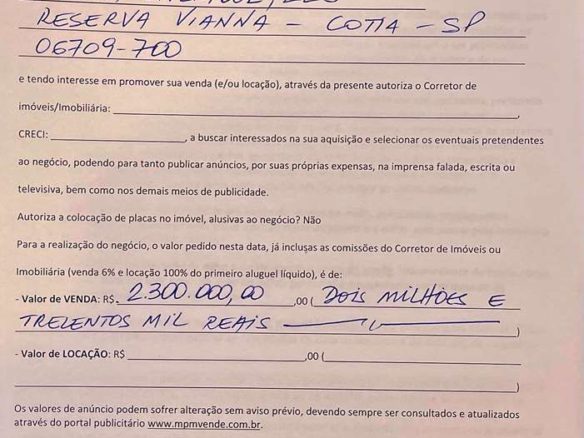 RESERVA VIANNA - COTIA - SP
06709-700
e tendo interesse em promover sua venda (e/ou locação), através da presente autoriza o Corretor de
imóveis/Imobiliária: ,
CRECI: , a buscar interessados na sua aquisição e selecionar os eventuais pretendentes
ao negócio, podendo para tanto publicar anúncios, por suas próprias expensas, na imprensa falada, escrita ou
televisiva, bem como nos demais meios de publicidade.
Autoriza a colocação de placas no imóvel, alusivas ao negócio? Não
Para a realização do negócio, o valor pedido nesta data, já inclusas as comissões do Corretor de Imóveis ou
Imobiliária (venda 6% e locação 100% do primeiro aluguel líquido), é de:
- Valor de VENDA: R$ 2.300.000,00 ,00 ( DOIS MILHÕES E
TREZENTOS MIL REAIS )
- Valor de LOCAÇÃO: R$ ,00 (
)
Os valores de anúncio podem sofrer alteração sem aviso prévio, devendo sempre ser consultados e atualizados
através do portal publicitário www.mpmvende.com.br.